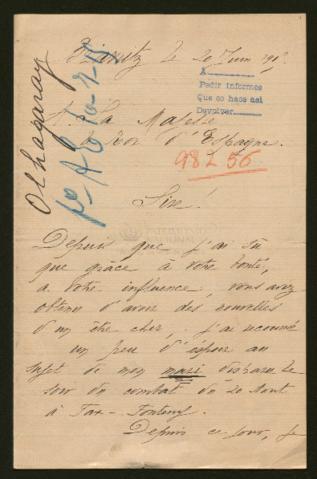 Biarritz le 20 Juin 191
A
Pedir informes
Que se haga así
Devolver
Olhagaray
A Sa Majesté
le Roi d'Espagne.
98256
Sire!
Depuis que j'ai su
que grâce à votre bonté,
à votre influence, vous avez
obtenu d'avoir des nouvelles
d'un être cher, j'ai
un peu d'espoir au
sujet de mon mari disparu le
soir du combat du 20 Août
à
Depuis ce jour, je